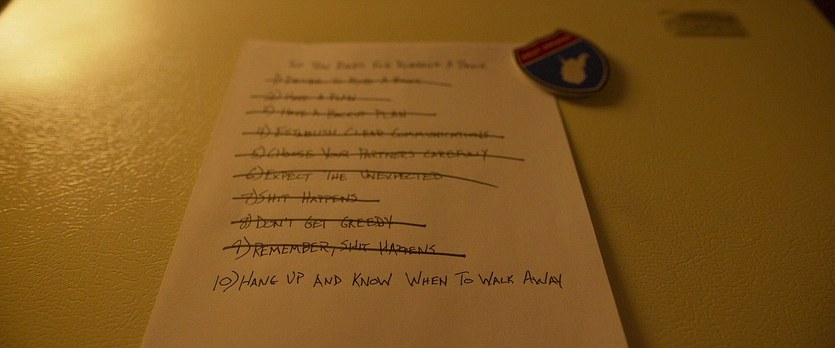 10 RULES FOR ROBBING A BANK
1) DECIDE TO ROB A BANK
2) HAVE A PLAN
3) HAVE A BACKUP PLAN
4) ESTABLISH CLEAR COMMUNICATIONS
5) CHOOSE YOUR PARTNERS CAREFULLY
6) EXPECT THE UNEXPECTED
7) SHIT HAPPENS
8) DON'T GET GREEDY
9) REMEMBER, SHIT HAPPENS
10) HANG UP AND KNOW WHEN TO WALK AWAY
WEST VIRGINIA